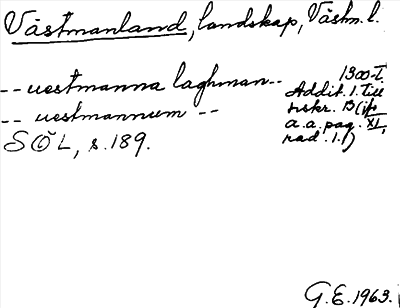 Västmanland, landskap, Västm. l.
-- uestmanna laghman --
-- uestmannum --
1300-t.
Addit. 1. till
hskr. B (jfr
a.a. pag. XI,
rad. 1.)
SOL, s. 189.
G.E. 1963.